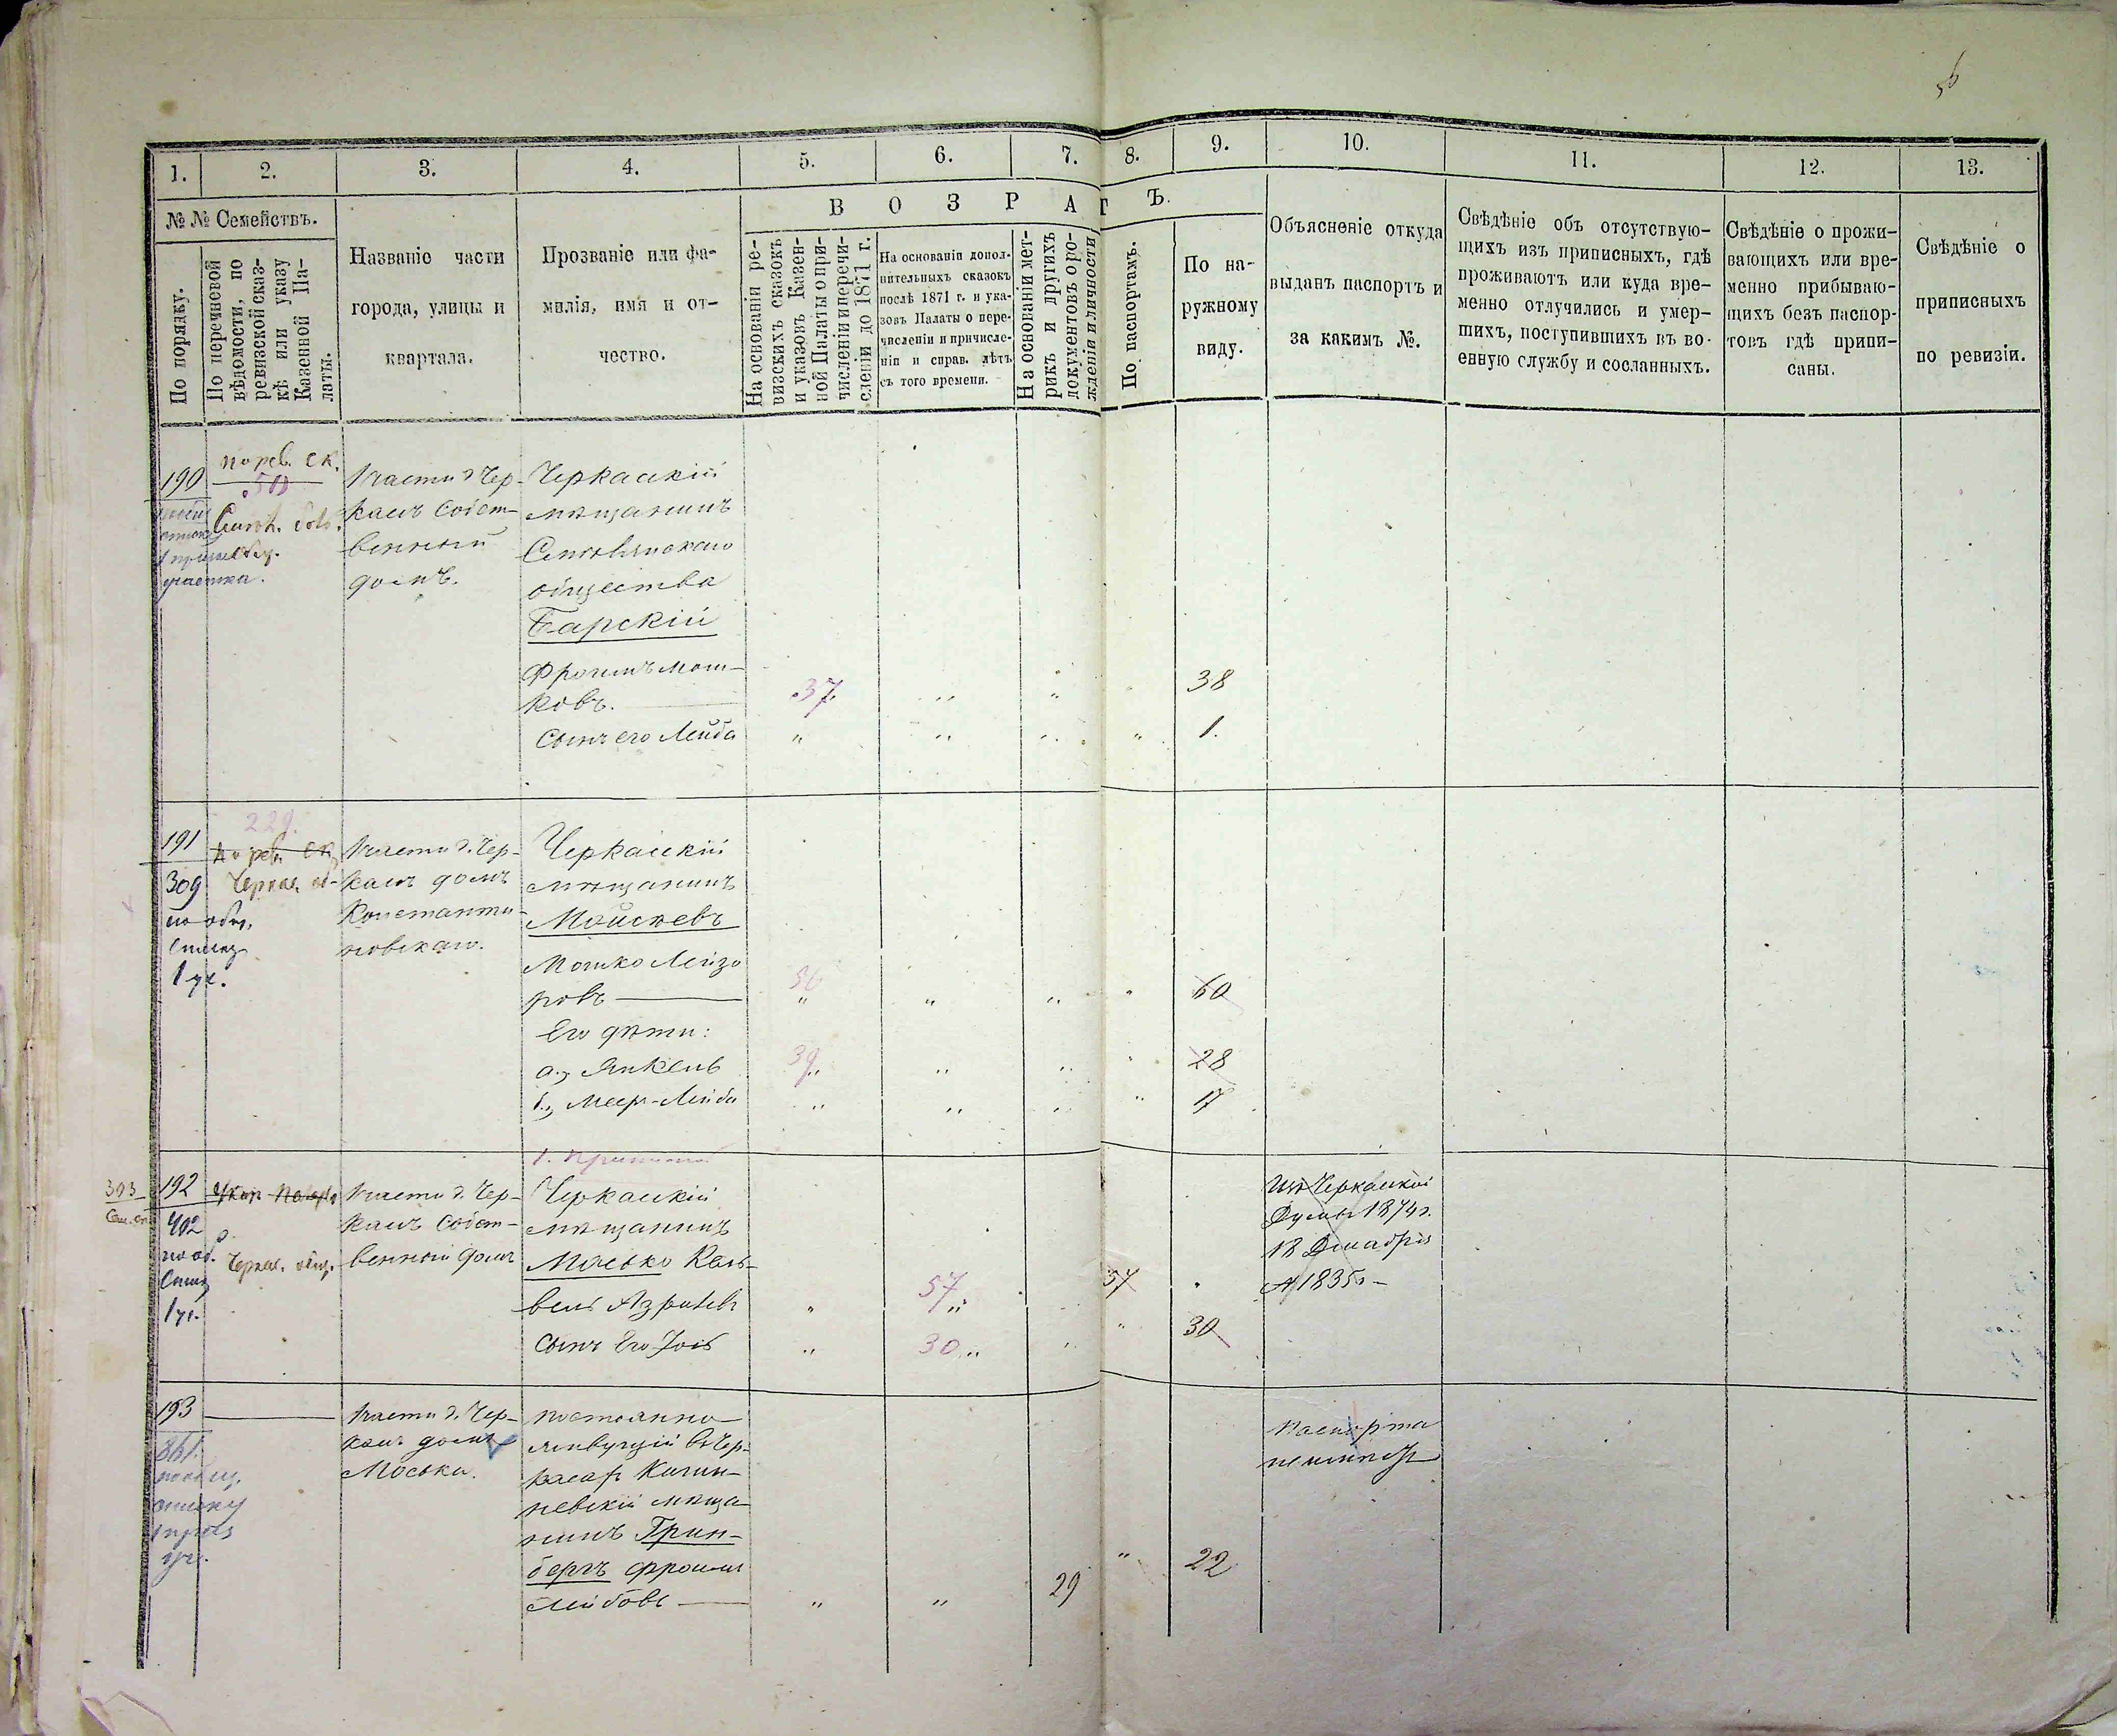 1.
2.
3.
4.
5.
6.
7.
8.
9.
10.
11.
12.
13.
№ № Семействъ.
По порядку.
По перечневой
вѣдомости, по
ревизской сказ-
кѣ или указу
Казенной Па-
латы.
Названіе части
города, улицы и
квартала.
Прозваніе или фа-
милія, имя и от-
чество.
В О З Р А Т Ъ.
На основаніи ре-
визскихъ сказокъ
и указовъ Казен-
ной Палаты о при-
численіи и перечи-
сленіи до 1871 г.
На основаніи допол-
нительныхъ сказокъ
послѣ 1871 г. и ука-
зовъ Палаты о пере-
численіи и причисле-
ніи и справ. лѣтъ
съ того времени.
На основаніи мет-
рикъ и другихъ
документовъ о рож-
деніи и личности
По паспортамъ.
По на-
ружному
виду.
Объясненіе откуда
выданъ паспортъ и
за какимъ №.
Свѣдѣніе объ отсутствую-
щихъ изъ приписныхъ, гдѣ
проживаютъ или куда вре-
менно отлучились и умер-
шихъ, поступившихъ въ во-
енную службу и сосланныхъ.
Свѣдѣніе о прожи-
вающихъ или вре-
менно прибываю-
щихъ безъ паспор-
товъ гдѣ припи-
саны.
Свѣдѣніе о
приписныхъ
по ревизіи.
190
по рев. ск.
1 части г. Чер-
касъ собст-
венный
домъ.
участка.
Черкасскій
мѣщанинъ
общества
Барскій
Фроимъ Мош-
ковъ.
37
38
Сынъ его Лейба
1.
191
229.
по рев. ск.
309
1 уч.
1 части г. Чер-
касъ домъ
Константи-
новскаго.
Черкасскій
мѣщанинъ
Моисѣевъ
Мошко Лейзо
ровъ
60
Его дѣти:
а., Янкель
39
28
б., Меер-Лейба
17
393
192
402
по об.
1 уч.
Черкас. общ.
1 части г. Чер-
касъ собст-
венный домъ
Черкасскій
мѣщанинъ
Моська
57
57
Сынъ его Іось
30
30
Изъ Черкаской
Думы 1874 г.
18 Декабря
№ 1835
193
361.
1 части г. Чер-
касъ домъ
Моськи.
постоянно
живущій въ Чер-
касах Кишин-
невскій мѣща-
нинъ Грин-
бергъ Фроимъ
Лейбовъ
29
22
Паспорта